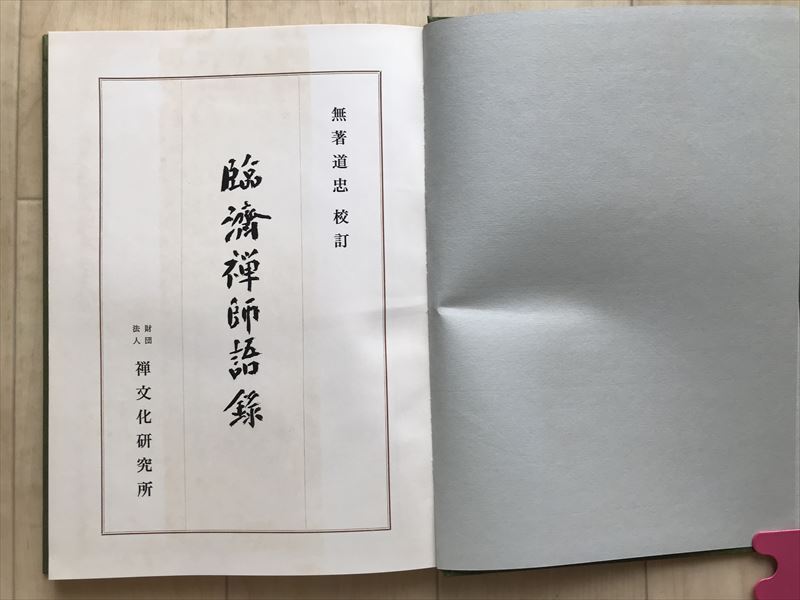 無著道忠 校訂
臨濟禅師語錄
財団
法人
禅文化研究所